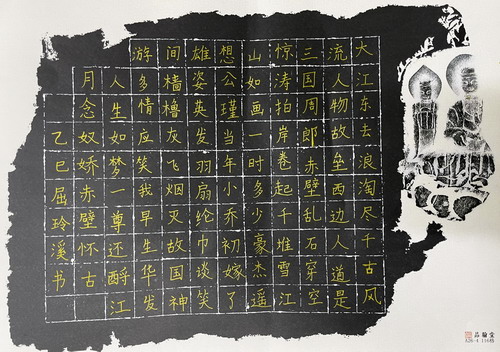 大江东去浪淘尽千古风
流人物故垒西边人道是
三国周郎赤壁乱石穿空
惊涛拍岸卷起千堆雪江
山如画一时多少豪杰遥
想公瑾当年小乔初嫁了
雄姿英发羽扇纶巾谈笑
间樯橹灰飞烟灭故国神
游多情应笑我早生华发
人生如梦一尊还酹江
月念奴娇赤壁怀古
乙巳屈玲溪书
品翰堂